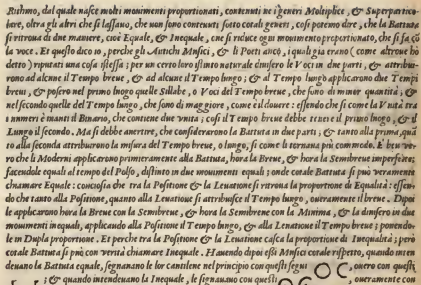 Rithmo, dal quale nasce molti mouimenti proportionati, contenuti ne i generi Moltiplice, & Superpartico-
lare, oltra gli altri che si lassano, che non sono contenuti sotto cotali generi, cosi potemo dire, che la Battuta
si ritroua di due maniere, cioè Equale, & Inequale, cne si riduce ogni mouimento proportionato, che si fa cõ
la voce. Et questo dico io, perche gli Antichi Musici, & li Poeti anco, i quali gia erano (come altroue hò
detto) riputati una cosa istessa; per un certo loro istinto naturale diuisero le Voci in due parti, & attribui-
rono ad alcune il Tempo breue, & ad alcune il Tempo lungo; & al Tempo lungo applicarono due Tempi
breui, & posero nel primo luogo quelle Sillabe, o Voci del Tempo breue, che sono di minor quantità; &
nel secondo quelle del Tempo lungo, che sono di maggiore, come è il douere: essendo che si come la Vnità tra
i numeri è inanti il Binario, che contiene due vnità; cosi il Tempo breue debbe tenere il primo luogo, & il
Lungo il secondo. Ma si debbe auertire, che considerarono la Battuta in due parti; & tanto alla prima, quã
to alla seconda attribuirono la misura del Tempo breue, o lungo, si come li tornaua più commodo. E' ben ve-
ro che li Moderni applicarono primieramente alla Battuta, hora la Breue, & hora la Semibreue imperfette;
facendole equali al tempo del Polso, distinto in due mouimenti equali; onde cotale Battuta si può veramente
chiamare Equale: conciosia che tra la Positione & la Leuatione si ritroua la proportione di Equalità: essen-
do che tanto alla Positione, quanto alla Leuatione si attribuisce il Tempo lungo, oueramente il breue. Dipoi
le applicarono hora la Breue con la Semibreue, & hora la Semibreue con la Minima, & la diuisero in due
mouimenti inequali, applicando alla Positione il Tempo lungo, & alla Leuatione il Tempo breue; ponendo-
le in Dupla proportione. Et perche tra la Positione & la Leuatione casca la proportione di Inequalità; però
cotale Battuta si può con verità chiamare Inequale. Hauendo dipoi essi Musici cotale rispetto, quando inten
deuano la Battuta equale, segnauano le lor cantilene nel principio con questi segni ouero con questi
; & quando intendeuano la Inequale, le segnauano con questi oueramente con